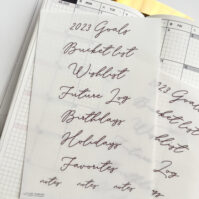 2023 Goals
Bucket list
Wishlist
Future Log
Birthdays
Holidays
Favorites
notes notes notes
2023 Goals
Bucket list